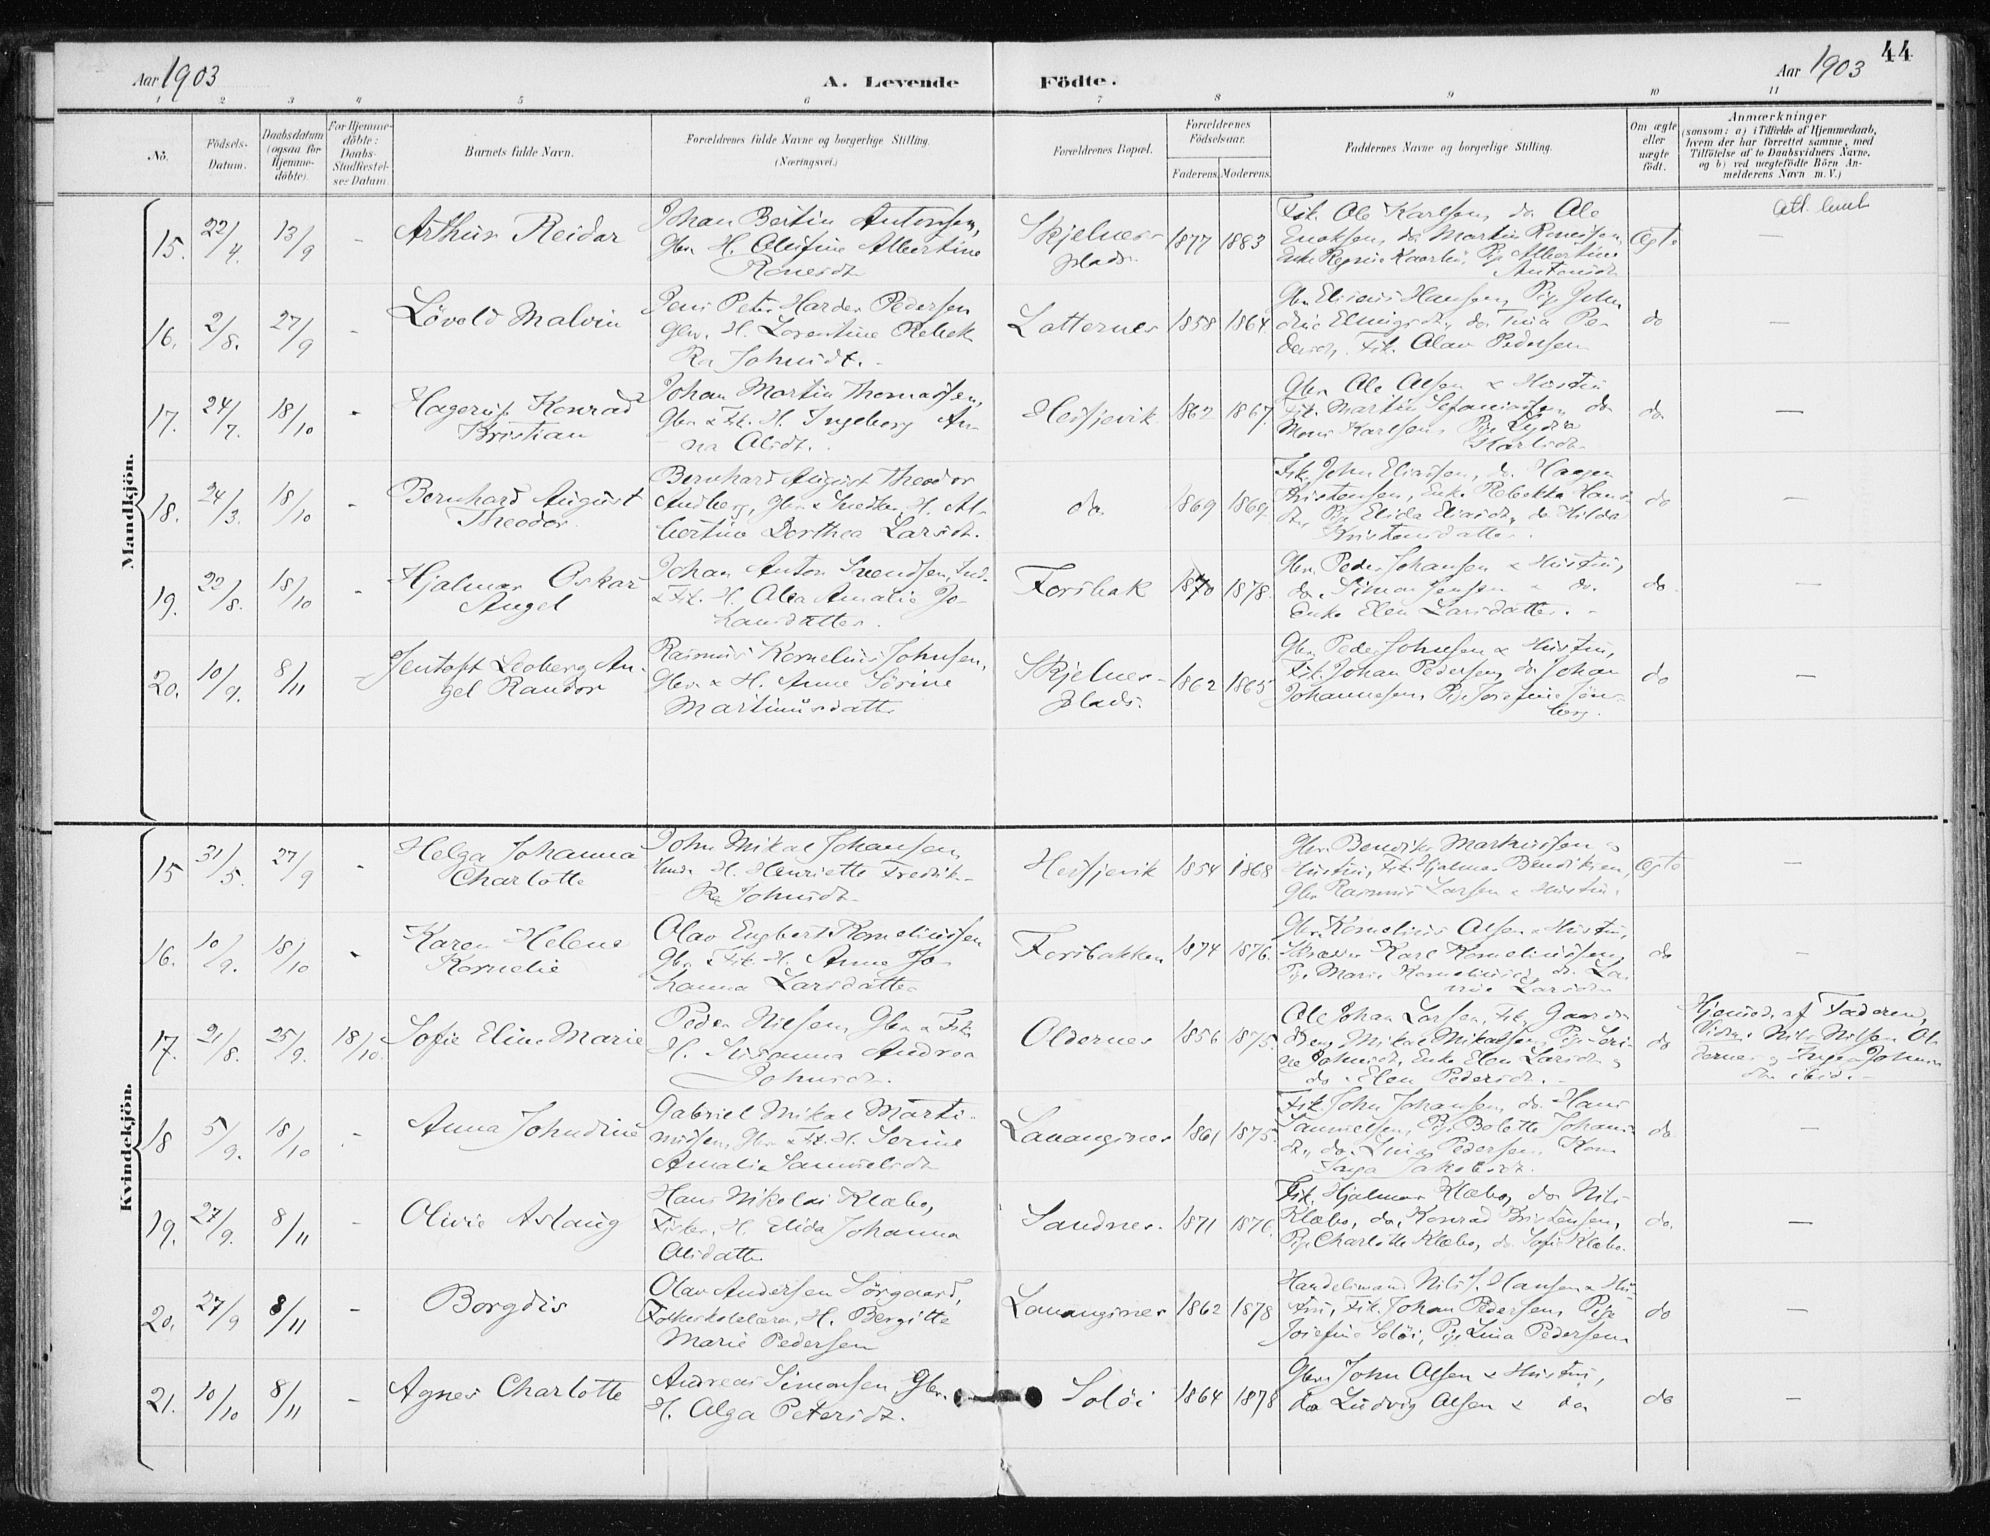 Aar 1903
A. Levende
Födte.
Aar 1903
44
1 2 3 4 5 6 7 8 9 10 11
No.
Födsels-
Datum.
Daabsdatum
(ogsaa for
Hjemme-
döbte).
For Hjemme-
döbte:
Daabs-
Stadfæstel-
ses Datum.
Barnets fulde Navn.
Forældrenes fulde Navne og borgerlige Stilling.
(Næringsvei.)
Forældrenes Bopæl.
Forældrenes
Födselsaar.
Faderens. Moderens.
Faddernes Navne og borgerlige Stilling.
Om ægte
eller
uægte
født.
Anmærkninger
(saasom: a) i Tilfælde af Hjemmedaab,
hvem der har forrettet samme, med
Tilföielse af to Daabsvidners Navne,
og b) ved uægtefödte Börn An-
melderens Navn m. V.)
Mandkjön.
15. 22/4. 13/9 - Arthur Reidar
Johan Bertin Antonsen,
Gbr. H. Olufine Albertine
Skjelnes-
plads.
1877 1883
Fisk. Ole Karlsen, do Ole
Ægte -
16. 2/8. 27/9 - Lövold Malvin
Jens Peter Harder Pedersen
Gbr. H. Lorentine Rebek-
ka Johnsdt.
Latternes 1858 1864
Fisk. Olav Pedersen
do -
17. 24/7. 18/10 - Hagerup Konrad
Kristian
Johan Martin Thomassen,
Gbr. & Fisk. H. Ingeborg An-
na Olsdt.
Hessfjevik 1862 1867.
Gbr. Ole Olsen & Hustru
Mons Karlsen, Pige Lydia
do -
18. 24/3. 18/10 - Bernhard August
Theodor.
Bernhard August Theodor
Lindberg, Gbr. & Snedker, H. Al-
bertine Dorthea Larsdt.
do. 1869 1869.
Fisk. John Eliassen, do. Haagen
Kristensen, Enke Rebekka Hans-
dt., Pige Elida Eliasdt., do Hilda
Kristensdatter.
do -
19. 22/8. 18/10 - Hjalmar Oskar
Angel
Johan Anton Svendsen, Ind.
& Fisk. H. Olea Amalie Jo-
hansdatter.
Forsbak 1870 1878.
Gbr. Peder Johansen & Hustru,
do. Simon Jensen & do.
Enke Elen Larsdatter.
do -
20. 10/9. 8/11 - Jentoft Leoberg An-
gel Randor
Rasmus Kornelius Johnsen,
Gbr. & H. Anne Sörine
Martinusdatter
Skjelnes-
plads.
1862 1865
Gbr. Peder Johnsen & Hustru,
Fisk. Johan Pedersen, do Johan
Johannesen, Pige Josefine Jön-
berg.
do -
Kvindekjön.
15 31/5. 27/9 - Helga Johanna
Charlotte
John Mikal Johansen,
H. Henriette Fredrik-
ke Johnsdt.
Hessfjevik 1854 1868
Hustru, Fisk. Hjalmar Bendiksen,
Gbr. Rasmus Larsen & Hustru.
Ægte -
16. 10/9. 18/10 - Karen Helene
Kornelie
Olav Engbert Korneliussen
Gbr. & Fisk. H. Anne Jo-
hanna Larsdatter
Forsbakken 1874 1876.
Gbr. Kornelius Olsen & Hustru,
Skræder Karl Korneliussen,
Pige Marie Korneliusdt., do. La-
do -
17. 21/8. 25/9. 18/10. Sofie Eline Marie
Peder Nilsen, Gbr. & Fisk.
H. Susanna Andrea
Johnsdt.
Oldernes 1856 1875.
Ole Johan Larsen, Fisk.
Mikal Mikalsen, Pige
Johnsdt., Enke Elen Larsdt. &
do. Elen Pedersdt.
do
Hjemmed. af Faderen,
Vidner Nils Nilsen Ol-
dernes & Inger Johns-
dt. ibid.
18 5/9. 18/10 - Anna Johndine
Gabriel Mikal Marti-
nussen, Gbr. & Fisk. H. Serine
Amalia Samuelsdt.
Lavangsnes 1861 1875.
Fisk. John Johansen, do. Hans
Samuelsen, Pige Bolette Johans-
dt., do. Lina Pedersen, Kone
Jakobsdt.
do. -
19. 27/9. 8/11 - Olivie Aslaug
Hans Nikolai Klæbo,
Fisker, H. Elida Johanna
Olisdatter
Sandnes. 1871 1876.
Fisk. Hjalmar Klæbo, do Nils
Klæbo, do. Konrad Kristensen,
Pige Charlotte Klæbo, do. Sofie Klæbo.
do. -
20. 27/9 8/11 - Borgdis
Olav Andersen Sörgaard,
Folkeskolelærer, H. Bergitte
Marie Pedersen
Lavangsnes 1862 1878
Handelsmand Nils J. Hansen & Hu-
stru, Fisk. Johan Pedersen, Pige
Josefine Solöi, Pige Lina Pedersen
do -
21. 10/10 8/11 - Agnes Charlotte
Andreas Simonsen, Gbr.
H. Olga Petersdt.
Solöi 1864 1878
Gbr. John Olsen & Hustru,
do Ludvig Olsen & do
do -